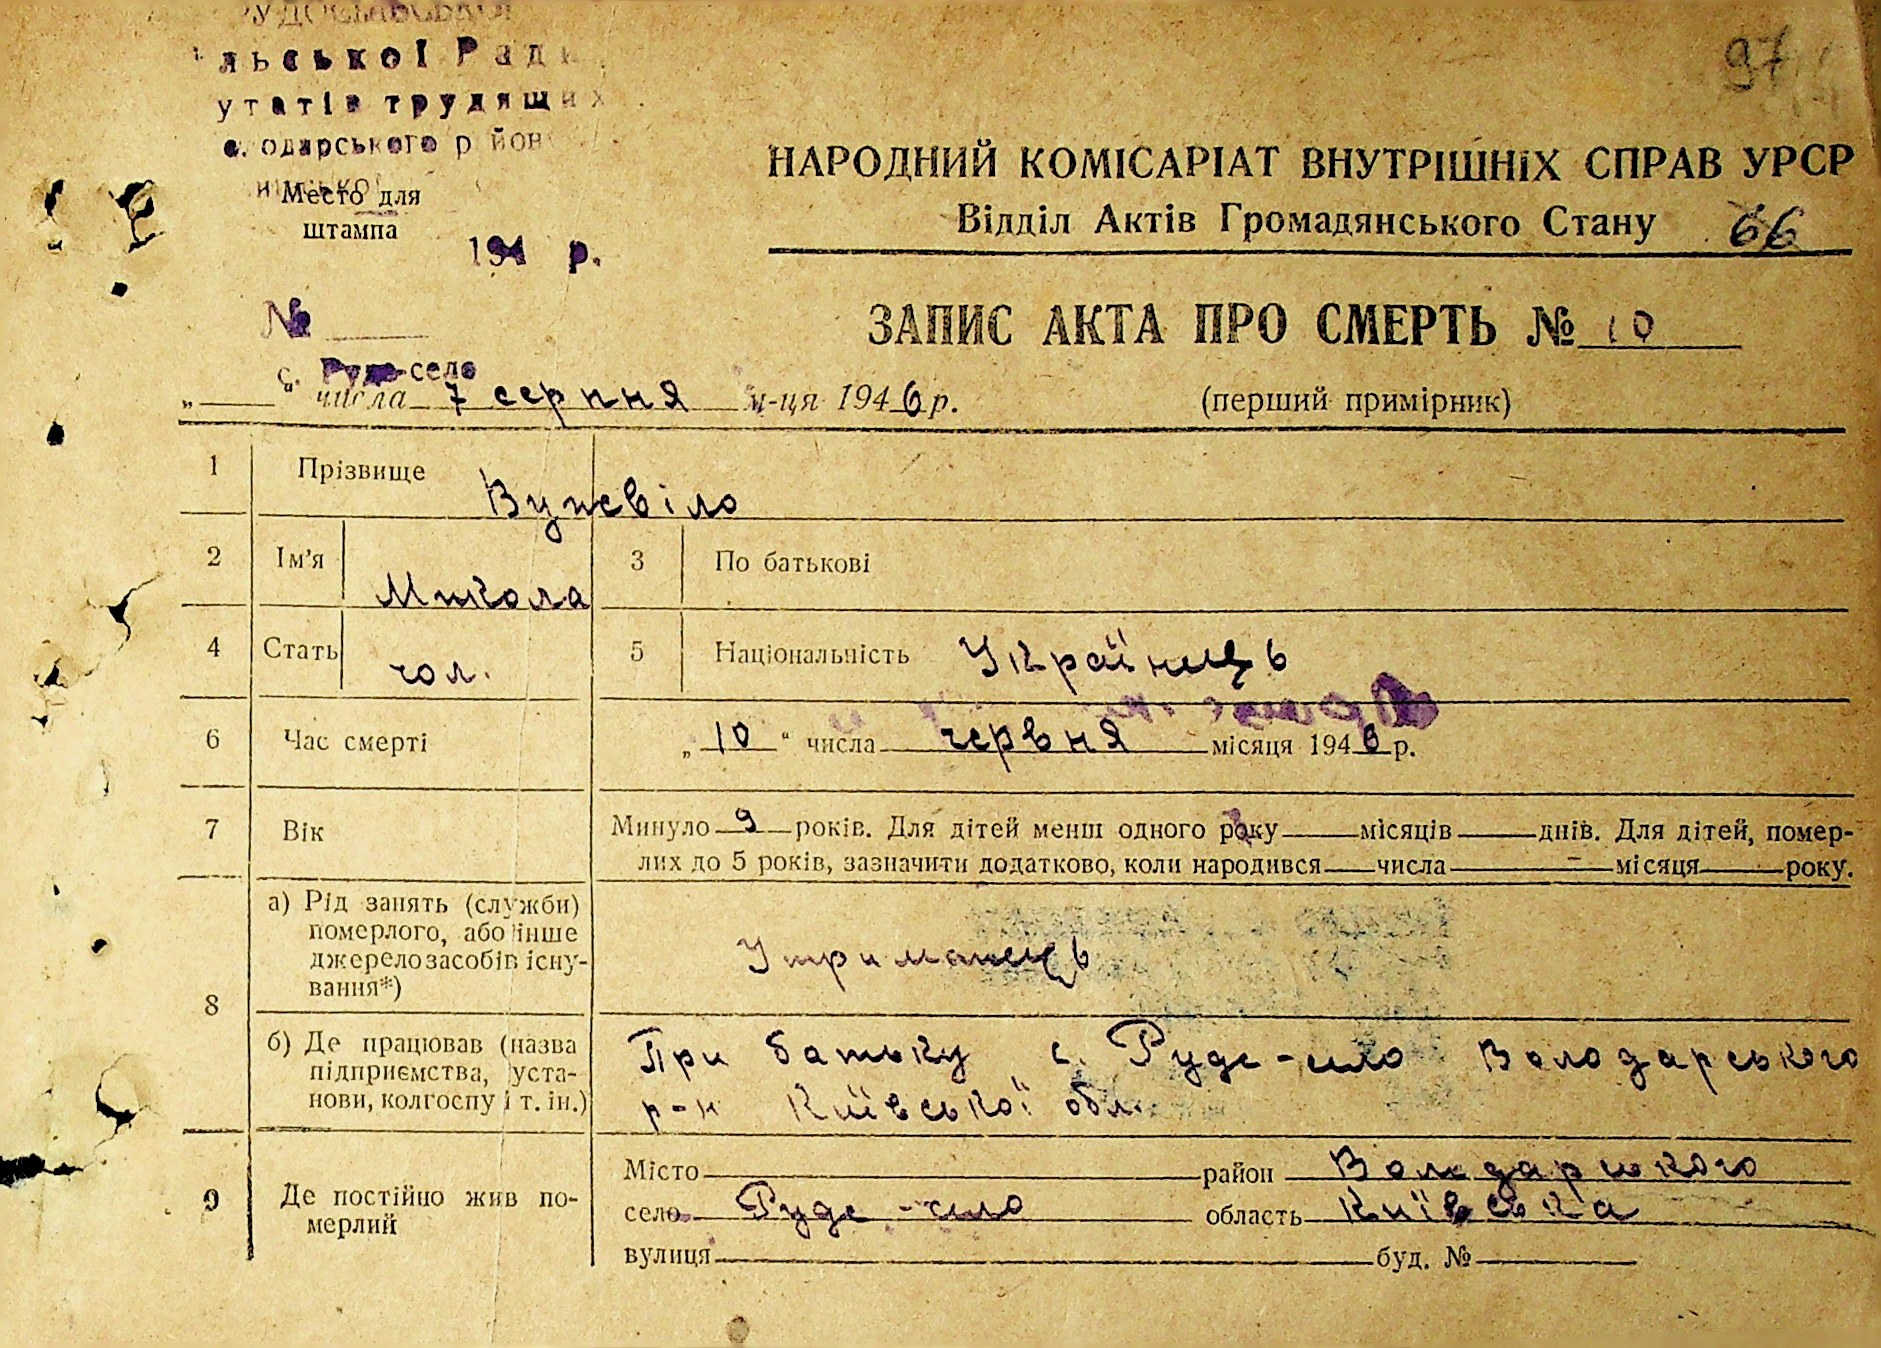 льської Ради
утатів трудящих
одарського р йон
Место для
штампа
194 р.
№
с. Руде-село
97
НАРОДНИЙ КОМІСАРІАТ ВНУТРІШНІХ СПРАВ УРСР
Відділ Актів Громадянського Стану 66
ЗАПИС АКТА ПРО СМЕРТЬ № 10
„ “ числа 7 серпня м-ця 1946 р.
(перший примірник)
1 Прізвище
2 Ім'я Микола 3 По батькові
4 Стать чол. 5 Національність Українець
6 Час смерті „10“ числа червня місяця 1946 р.
7 Вік Минуло 9 років. Для дітей менш одного року місяців днів. Для дітей, помер-
лих до 5 років, зазначити додатково, коли народився числа місяця року.
8 а) Рід занять (служби)
померлого, або інше
джерело засобів існу-
вання*)
Утриманець
б) Де працював (назва
підприємства, уста-
нови, колгоспу і т. ін.)
При батьку с. Руде-село Володарського
р-н Київської обл.
9 Де постійно жив по-
мерлий
Місто район Володарського
село Руде-село область Київська
вулиця буд. №